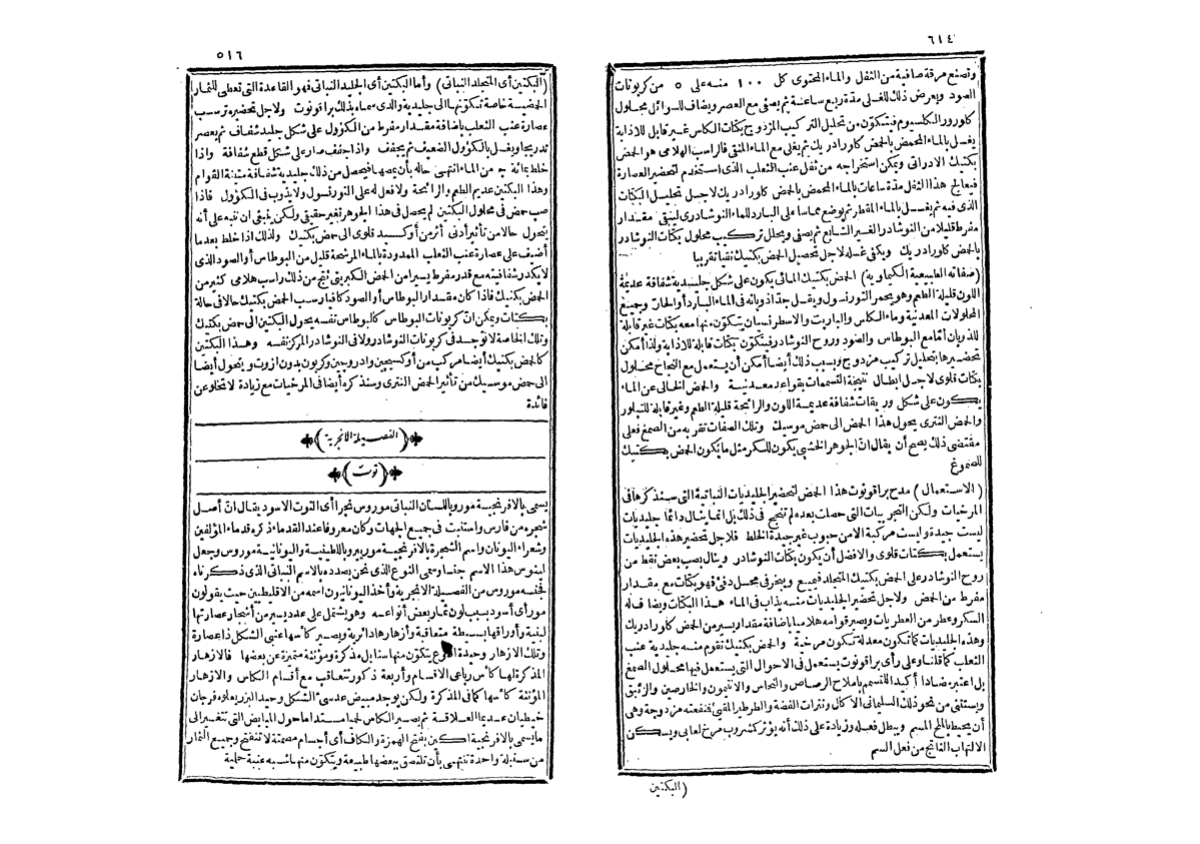 ٦١٤
وتصنع مرقة صافية من الثفل والماء المحتوى كل ١٠٠ منه على ٥ من كربونات
الصود ويعرض ذلك للغلى مدة ربع ساعة ثم يصفى مع العصر ويضاف للسوائل محلول
كلورور الكلسيوم فيتكون من تحليل التركيب المزدوج بكتات الكلس غير قابل للاذابة
يغسل بالماء المحمض بالحمض كلورادريك ثم يغلى مع الماء المنقى فالراسب الهلامى هو الحمض
بكتيك الادراتى ويمكن استخراجه من ثفل عنب الثعلب الذى استخدم لتحضير العصارة
فيعالج هذا الثفل مدة ساعات بالماء المحمض بالحمض كلورادريك لاجل تحليل البكتات
الذى فيه ثم يغسل بالماء المقطر ثم يوضع مماسا على البارد للماء النوشادرى لينقى مقدار
مفرط قليلا من النوشادر الغير التابع ثم يصفى ويحلل تركيب محلول بكتات النوشادر
بالحمض كلورادريك ويكفى غسله لاجل تحصيل الحمض بكتيك نقيا تقريبا
(صفاته الطبيعية الكيماوية) الحمض بكتيك المائى يكون على شكل جليدية شفافة عديمة
اللون قليلة الطعم وهو يحمر التورنسول ويقل جدا ذوبانه فى الماء البارد أو الحار وجميع
المحلولات المعدنية وماء الكلس والباريت والاسطرنسيان يتكون منها معه بكتات غير قابلة
للذوبان أما مع البوطاس والصود وروح النوشادر فيتكون بكتات قابلة للاذابة ولذا أمكن
تحضيرها بتحليل تركيب مزدوج وبسبب ذلك أيضا أمكن أن يستعمل مع النجاح محلول
بكتات قلوى لاجل ابطال نتيجة التسممات بقواعد معدنية والحمض الخالى عن الماء
يكون على شكل وريقات شفافة عديمة اللون والرائحة قليلة الطعم وغير قابلة للتبلور
والحمض النترى يحول هذا الحمض الى حمض موسيك وتلك الصفات تقربه من الصمغ فعلى
مقتضى ذلك يصح أن يقال ان الجوهر الخشبى يكون للسكر مثل ما يكون الحمض بكتيك
للصموغ
(الاستعمال) مدح براقونوت هذا الحمض لتحضير الجليديات النباتية التى سنذكرها فى
المرخيات ولكن التجربيات التى حصلت بعده لم تنجح فى ذلك بل انما ينال دائما جليديات
ليست جيدة وليست مركبة الا من حبوب غير جيدة الخلط فلاجل تحضير هذه الجليديات
يستعمل بكتات قلوى والافضل أن يكون بكتات النوشادر وينال بصب بعض نقط من
روح النوشادر على الحمض بكتيك المتجلد فيميع ويبخر فى محل دفئ فهو بكتات مع مقدار
مفرط من الحمض ولاجل تحضير الجليديات منه يذاب فى الماء هذا البكتات ويضاف له
السكر وعطر من العطريات ويصير قوامه هلاميا باضافة مقدار يسير من الحمض كلورادريك
وهذه الجليديات كما تكون معدلة تكون مرخية والحمض بكتيك تقوم منه جليدية عنب
الثعلب كما قلنا وعلى رأى براقونوت يستعمل فى الاحوال التى يستعمل فيها محلول الصمغ
بل اعتبر مضادا أكيدا للتسمم باملاح الرصاص والنحاس والانتيمون والخارصين والزئبق
ويستثنى من نحو ذلك السليمانى الاكال ونترات الفضة والطرطير المقيئ فمنفعته مزدوجة وهى
أن يحيط بالملح المسم ويبطل فعله وزيادة على ذلك أنه يؤثر كمشروب مرخ لعابى ويسكن
الالتهاب الناتج من فعل السم
(البكتين
٥١٦
(البكتين أى المتجلد النباتى) وأما البكتين أى الجليد النباتى فهو القاعدة التى تعطى للثمار
الحمضية خاصة تكوّنها الى جليدية والذى سماه بذلك براقونوت ولاجل تحضيره ترسب
عصارة عنب الثعلب باضافة مقدار مفرط من الكؤول على شكل جليد شفاف ثم يعصر
تدريجا ويغسل بالكؤول الضعيف ثم يجفف واذا جفف صار على شكل قطع شفافة واذا
خلط بمائة جـ من الماء انتهى حاله بأن يمصها فيحصل من ذلك جليدية شفافة متينة القوام
وهذا البكتين عديم الطعم والرائحة ولا فعل له على التورنسول ولا يذوب فى الكؤول فاذا
صب حمض فى محلول البكتين لم يحصل فى هذا الجوهر تغير حقيقى ولكن ينبغى ان ننبه على أنه
يتحول حالا من تأثير أدنى أثر من أوكسيد قلوى الى حمض بكتيك ولذلك اذا خلط بعد ما
أضيف على عصارة عنب الثعلب الممدودة بالماء المرشحة قليل من البوطاس أو الصود الذى
لا يكدر شفافيته مع قدر مفرط يسير من الحمض الكبريتى نتج من ذلك راسب هلامى كثير من
الحمض بكتيك فاذا كان مقدار البوطاس أو الصود كافيا رسب الحمض بكتيك حالا فى حالة
بكتات ويمكن ان كربونات البوطاس كالبوطاس نفسه يحول البكتين الى حمض بكتيك
وتلك الخاصة لا توجد فى كربونات النوشادر ولا فى النوشادر المركز نفسه وهذا البكتين
كالحمض بكتيك أيضا مركب من أوكسيجين وادروجين وكربون بدون ازوت ويتحول أيضا
الى حمض موسيك من تأثير الحمض النترى وسنذكره أيضا فى المرخيات مع زيادة لا تخلو عن
فائدة
(الفصيلة الانجرية)
(توت)
يسمى بالافرنجية مورو باللسان النباتى موروس نجرا أى التوت الاسود يقال ان أصل
شجره من فارس واستنبت فى جميع الجهات وكان معروفا عند القدماء ذكره قدماء المؤلفين
وشعراء اليونان واسم الشجرة بالافرنجية موريير وباللطينية واليونانية موروس وجعل
لينوس هذا الاسم جنسا وسمى النوع الذى نحن بصدده بالاسم النباتى الذى ذكرناه
فجنسه موروس من الفصيلة الانجرية وأخذ اليونانيون اسمه من الاقليطين حيث يقولون
مور أى أسود بسبب لون ثمار بعض أنواعه وهو يشتمل على عدد يسير من أشجار عصارتها
لبنية وأوراقها بسيطة متعاقبة وأزهارها دائرية ويصير كأسها عنبى الشكل ذا عصارة
وتلك الازهار وحيدة النوع يتكون منها سنابل مذكرة ومؤنثة متميزة عن بعضها فالازهار
المذكرة لها كأس رباعى الاقسام وأربعة ذكور تتعاقب مع أقسام الكأس والازهار
المؤنثة كأسها كما فى المذكرة ولكن يوجد مبيض عدسى الشكل وحيد البزر يعلوه فرجان
خيطيان عديما العلاقة ثم يصير الكأس لحميا مستداما حول المبايض التى تتغير الى
ما يسمى بالافرنجية اكين بفتح الهمزة والكاف أى أجسام مصمتة لا تنفتح وجميع الثمار
من سنبلة واحدة تنتهى بأن تلتصق ببعضها طبيعة ويتكون منها شبه عنبة حلمية